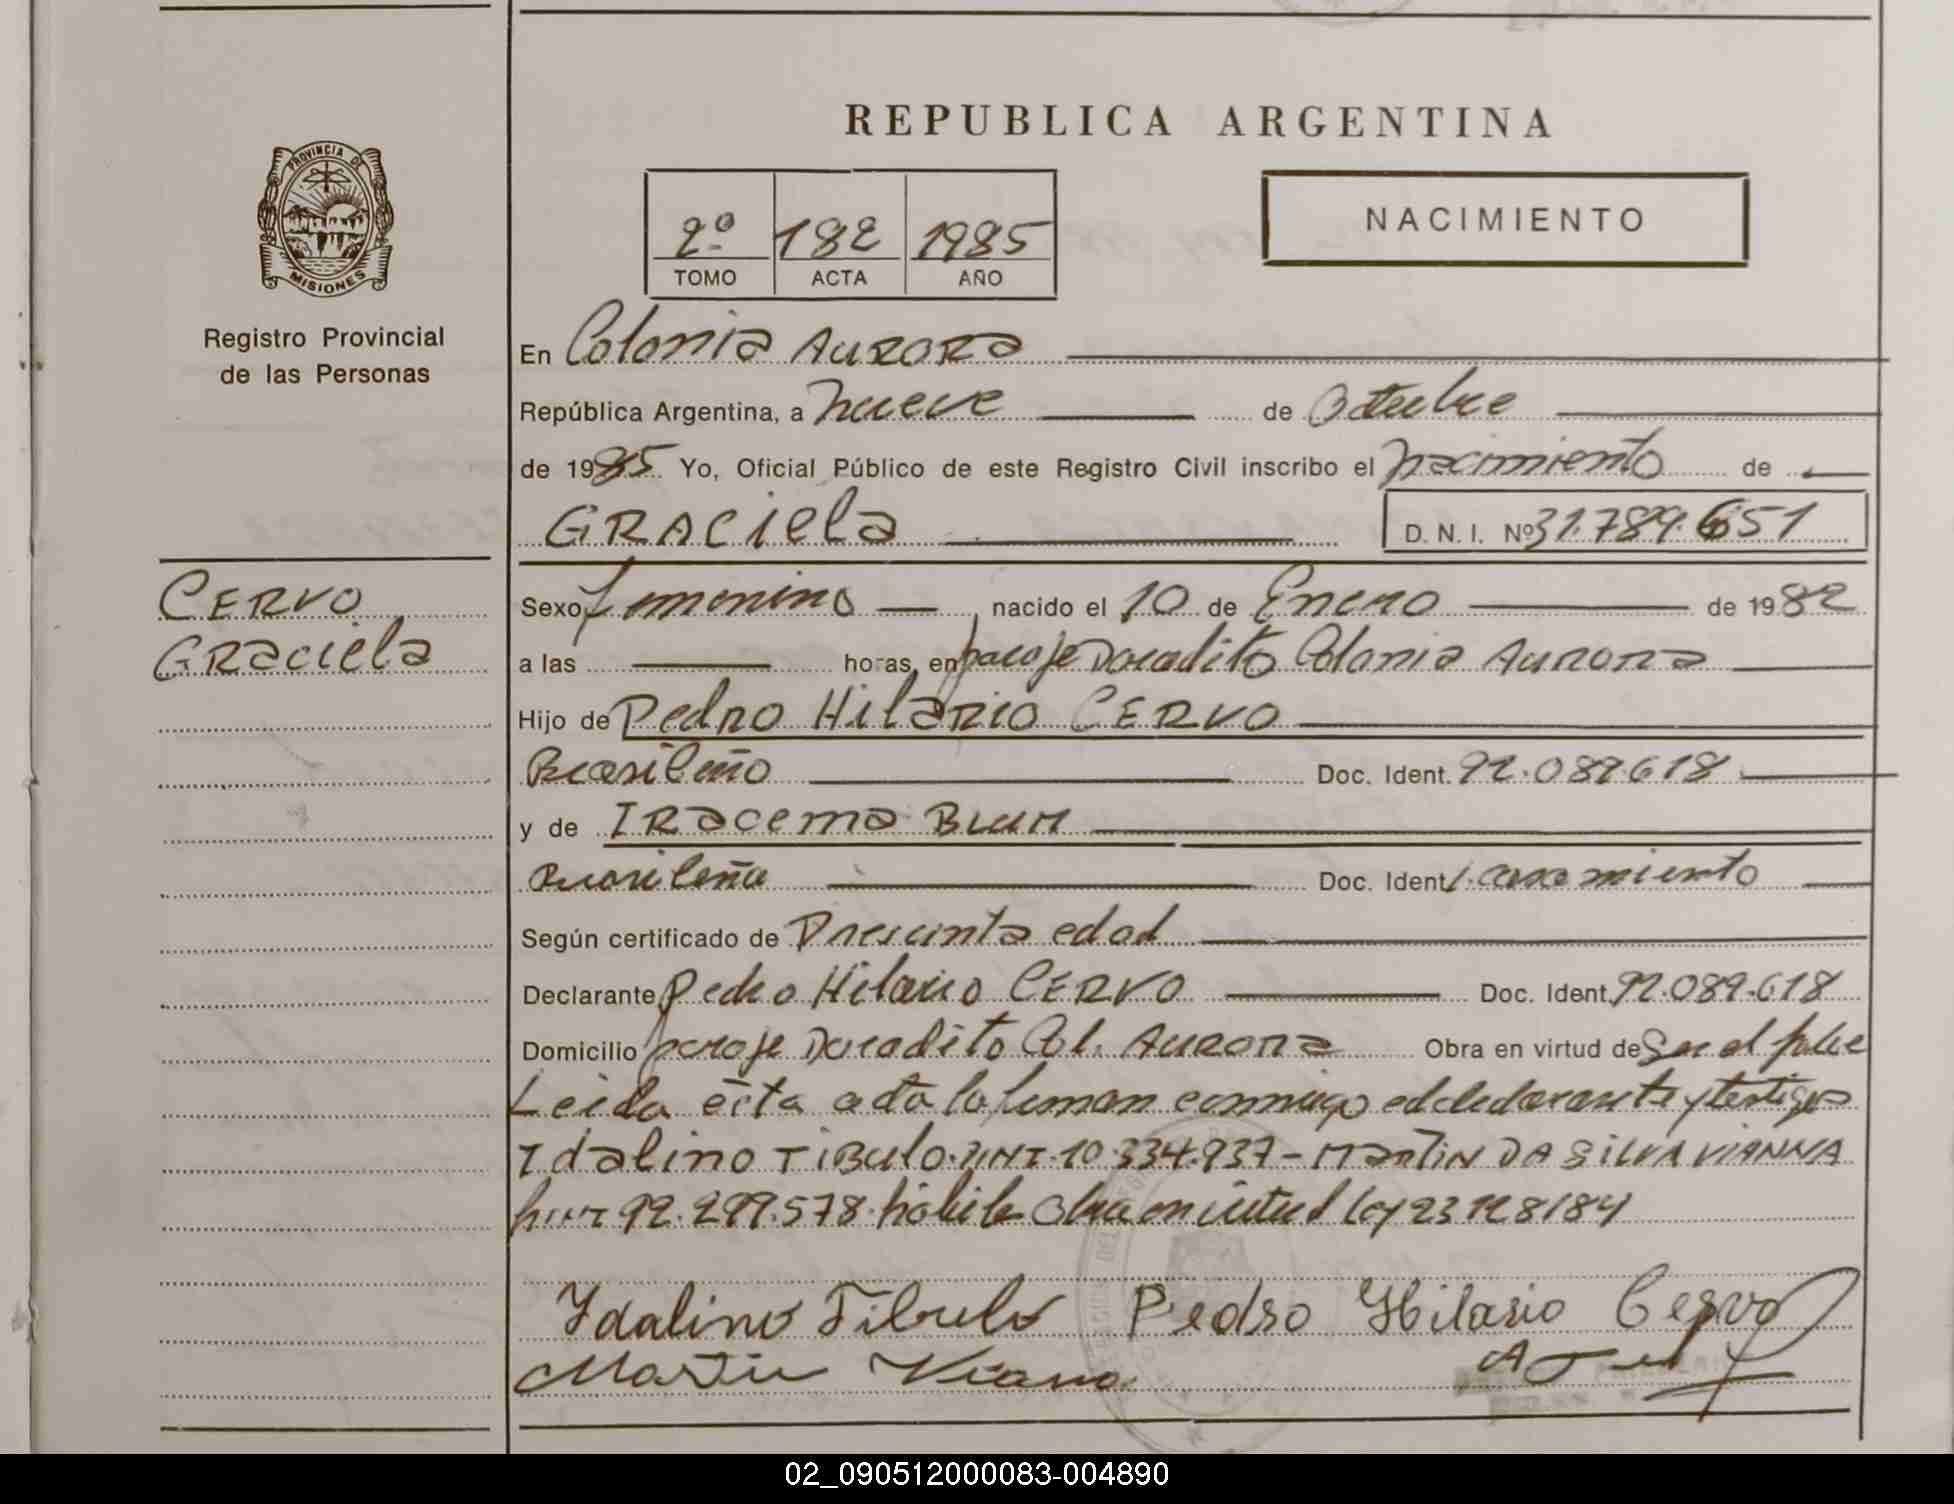 REPUBLICA ARGENTINA
PROVINCIA DE
MISIONES
Registro Provincial
de las Personas
2º 182 1985
TOMO ACTA AÑO
NACIMIENTO
En Colonia AURORA
República Argentina, a nueve de Octubre
de 1985 Yo, Oficial Público de este Registro Civil inscribo el nacimiento de
GRACIELA
D. N. I. Nº 31.789.651
CERVO
GRACIELA
Sexo femenino nacido el 10 de Enero de 1982
a las horas, en paraje Doradito Colonia Aurora
Hijo de Pedro Hilario CERVO
Brasileño Doc. Ident. 92.089.618
y de IRacema Blum
Brasileña Doc. Ident. casamiento
Según certificado de Presunta edad
Declarante Pedro Hilario CERVO Doc. Ident. 92.089.618
Domicilio paraje Doradito Col. Aurora Obra en virtud de Ser el padre
Leida ésta acta la firman conmigo el declarante y testigos
Idalino TIBulo. DNI. 10.334.937 - Martin DA SILVA VIANNA
DNI 92.299.578. hábiles Obra en virtud ley 23128/84
Idalino Tibulo Pedro Hilario Cervo
Martin Viana
02_090512000083-004890